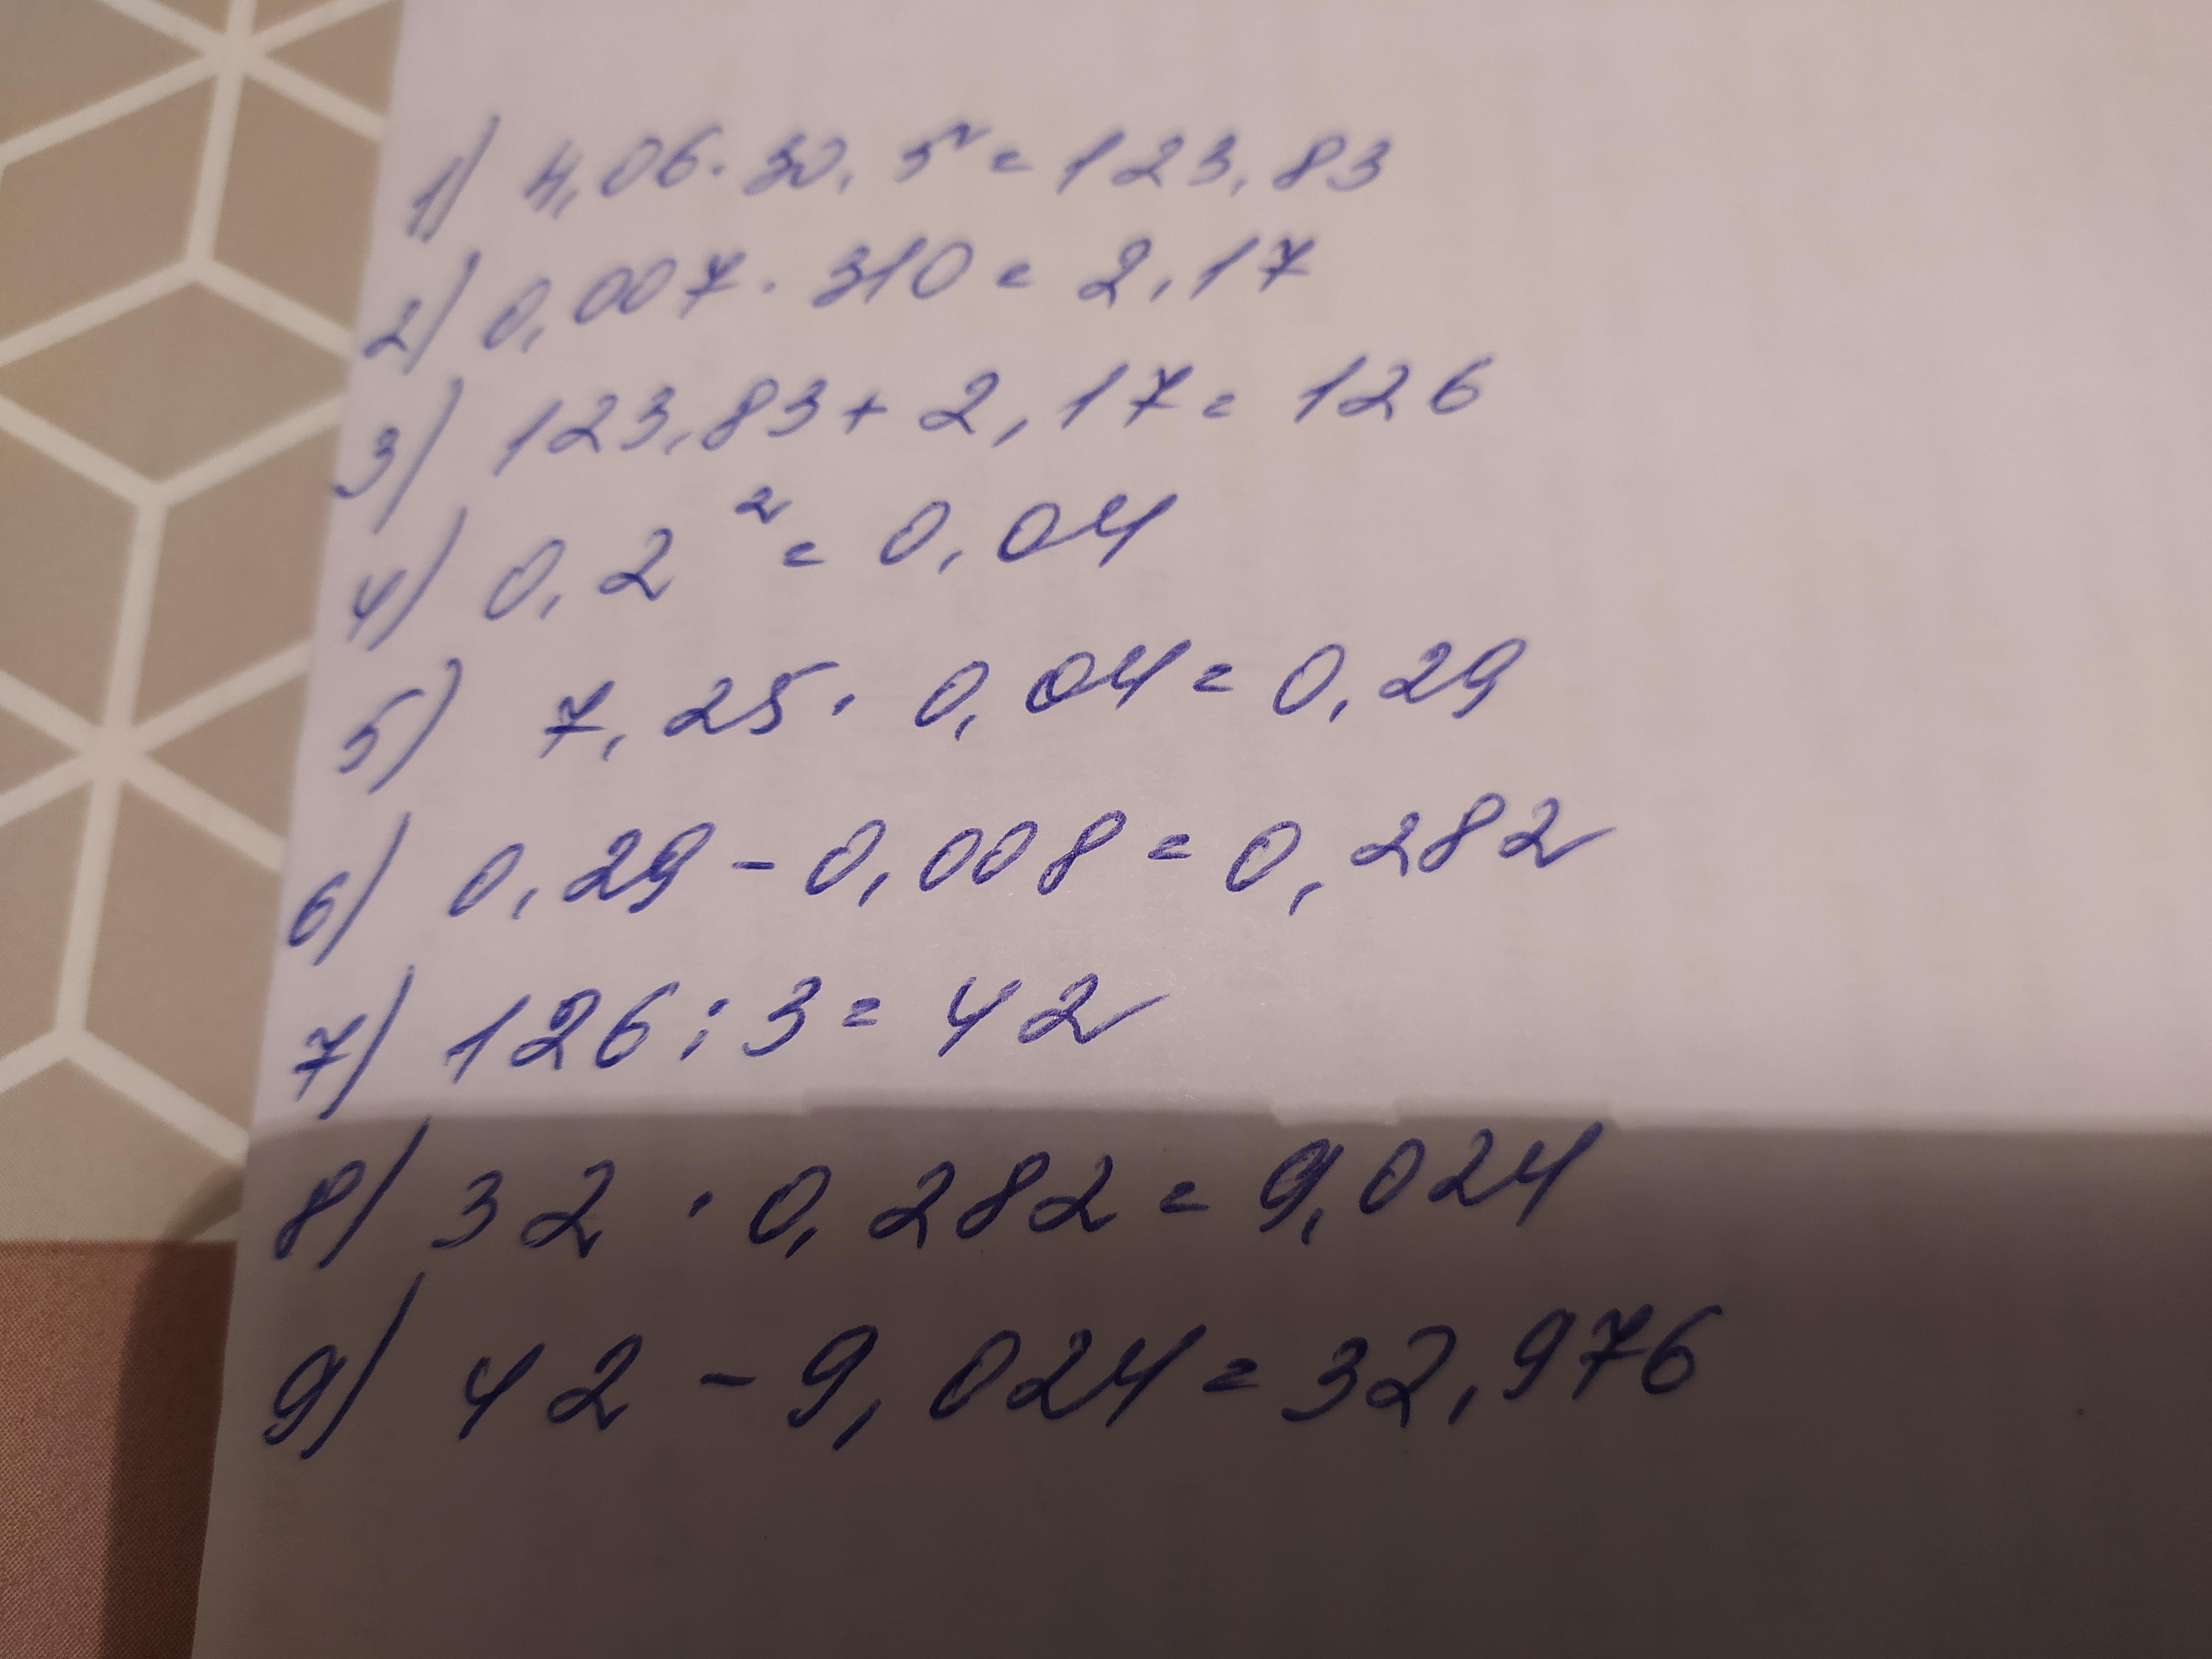 1) 4,06 · 30,5 = 123,83
2) 0,007 · 310 = 2,17
3) 123,83 + 2,17 = 126
4) 0,2² = 0,04
5) 7,25 · 0,04 = 0,29
6) 0,29 - 0,008 = 0,282
7) 126 : 3 = 42
8) 32 · 0,282 = 9,024
9) 42 - 9,024 = 32,976